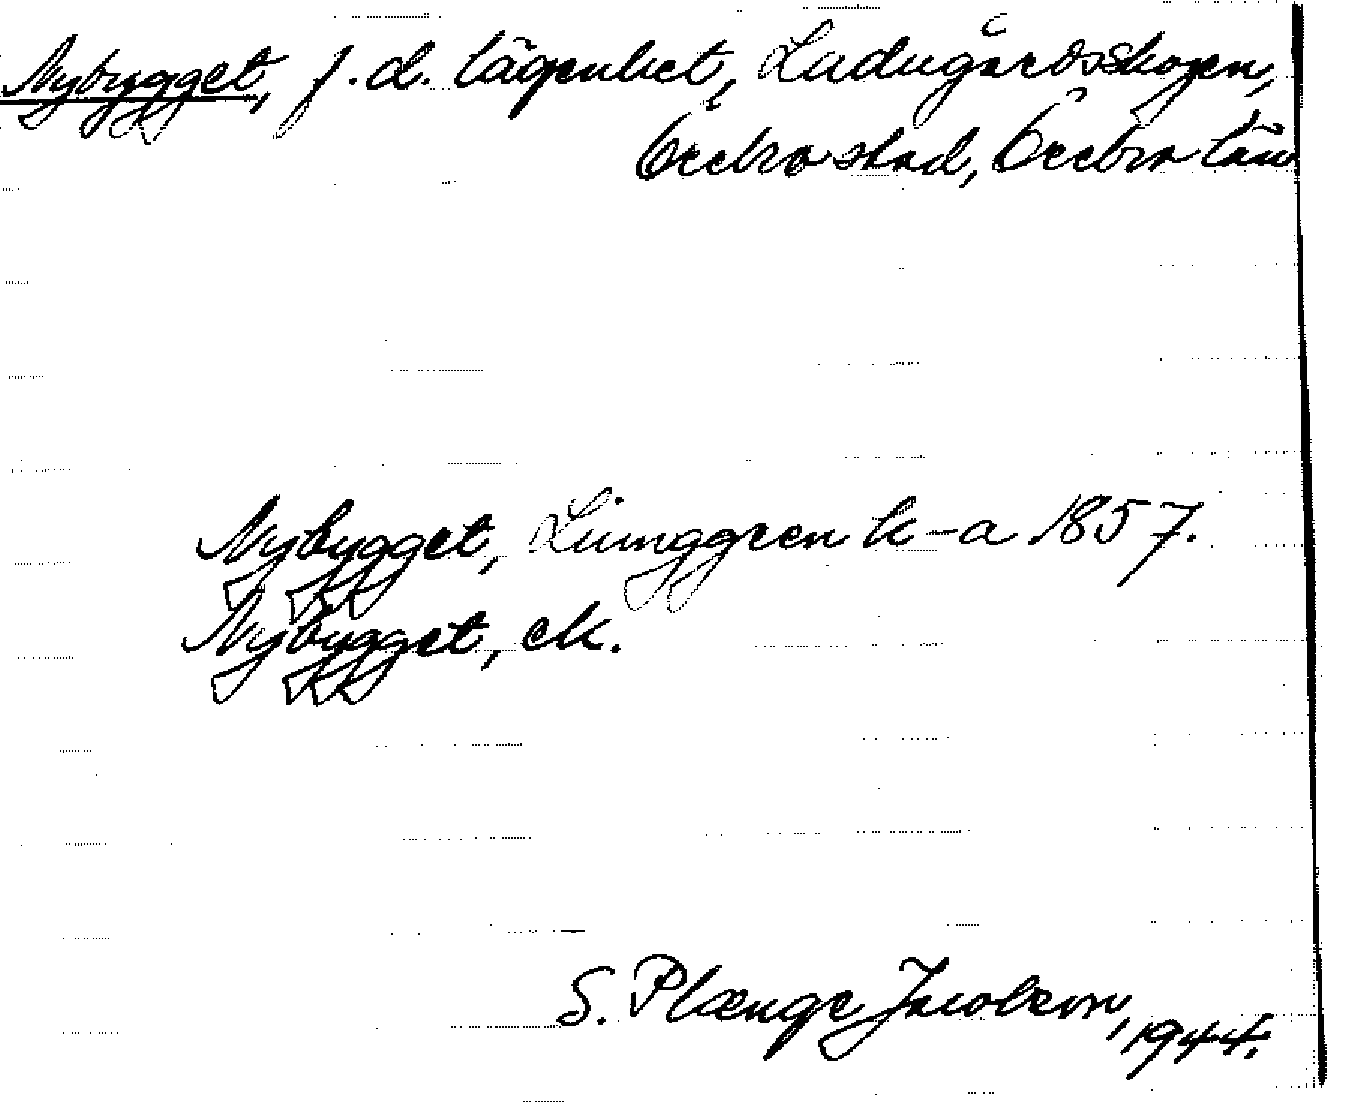 Nybygget, f.d. lägenhet, Ladugårdsskogen,
Örebro stad, Örebro län
Nybygget, Ljunggren k-a 1857.
Nybygget, ek.
S. Plænge Jacobson, 1944.